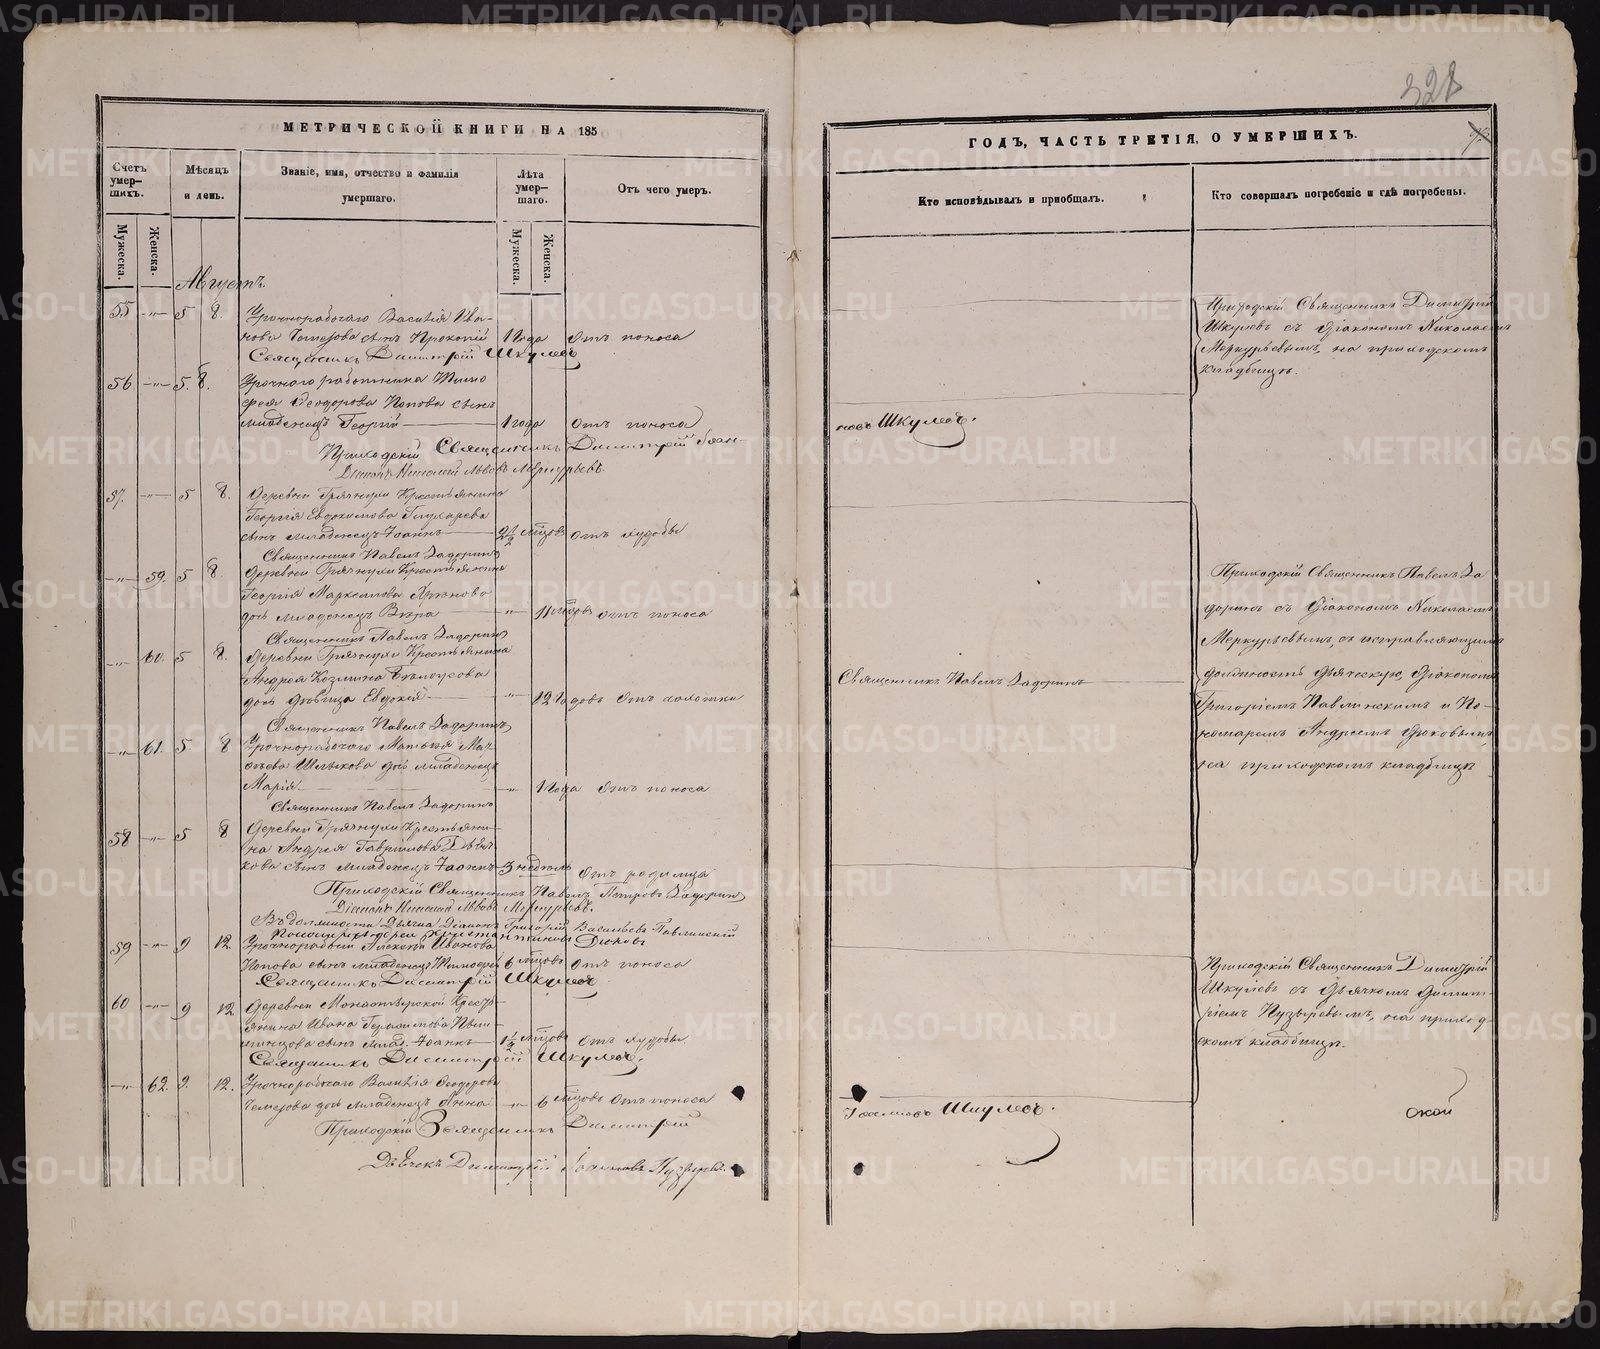 328
МЕТРИЧЕСКОЙ КНИГИ НА 185
Счетъ умер-шихъ.
Мѣсяцъ и день.
Званіе, имя, отчество и фамилія умершаго.
Лѣта умер-шаго.
Отъ чего умеръ.
Мужеска.
Женска.
Мужеска.
Женска.
Августъ.
55 5 8. Урочнорабочаго Василія Ива-
нова сынъ Прокопій 1 года Отъ поноса
Священникъ Димитрій Шкулевъ
56 5. 8. Урочнаго работника Тимо
фея Ѳеодорова Попова сынъ
младенецъ Георгій 1 года Отъ поноса
Приходскій Священникъ Димитрій Іоан-
Діаконъ Николай Львовъ Меркурьевъ.
57. 5 8. Деревни Грязнухи Крестьянина
Георгія Евдокимова
сынъ младенецъ Іоаннъ 2½ мѣсцовъ Отъ худобы
Священникъ Павелъ Задоринъ
59. 5 8. Деревни Грязнухи Крестьянина
Георгія
дочь младенецъ Вѣра 11 мѣсцовъ Отъ поноса
Священникъ Павелъ Задоринъ
60. 5 8. Деревни Грязнухи Крестьянина
Андрея Козмина
дочь дѣвица Евдокія 12 Годовъ Отъ чахотки
Священникъ Павелъ Задоринъ
61. 5 8 Урочнорабочаго Матвѣя Мат
вѣева дочь младенецъ
Марія 1 Года Отъ поноса
Священникъ Павелъ Задоринъ
58 5 8 Деревни Грязнухи Крестьяни-
на Андрея Гавриилова
кова сынъ младенецъ Іоаннъ 3 недѣль Отъ родимца
Приходскій Священникъ Павелъ Петровъ Задоринъ
Діаконъ Николай Львовъ Меркурьевъ.
Въ должности Дьячка Діаконъ Григорій Васильевъ Павлинскій
Пономарь Андрей Константиновъ Дюковъ
59 9 12. Алексѣя Иванова
Попова сынъ младенецъ Тимоѳей 6 мѣсцовъ Отъ поноса
Священникъ Димитрій Шкулевъ
60 9 12 Деревни Монастырской Кресть-
янина Ивана Герасимова Пьян-
сынъ млад. Іоаннъ 1½ мѣсцовъ Отъ худобы
Священникъ Димитрій Шкулевъ.
62. 9. 12. Урочнорабочаго Василія Ѳеодорова
дочь младенецъ Анна 6 мѣсцовъ Отъ поноса
Приходскій Священникъ Димитрій
Дьячекъ Димитрій Пузыревъ.
ГОДЪ, ЧАСТЬ ТРЕТІЯ, О УМЕРШИХЪ.
Кто исповѣдывалъ и пріобщалъ.
Кто совершалъ погребеніе и гдѣ погребены.
новъ Шкулевъ.
Священникъ Павелъ Задоринъ
Іоанновъ Шкулевъ.
Приходскій Священникъ Димитрій
Шкулевъ съ діакономъ Николаемъ
Меркурьевымъ, на приходскомъ
кладбищѣ.
Приходскій Священникъ Павелъ За
доринъ съ Діакономъ Николаемъ
Меркурьевымъ, съ исправляющимъ
должность дьяческую, Діакономъ
Григоріемъ Павлинскимъ и По-
номаремъ Андреемъ Дюковымъ,
на приходскомъ кладбищѣ
Приходскій Священникъ Димитрій
Шкулевъ съ Дьячкомъ Димит-
ріемъ Пузыревымъ, на приход-
скомъ кладбищѣ.
ской
METRIKI.GASO-URAL.RU